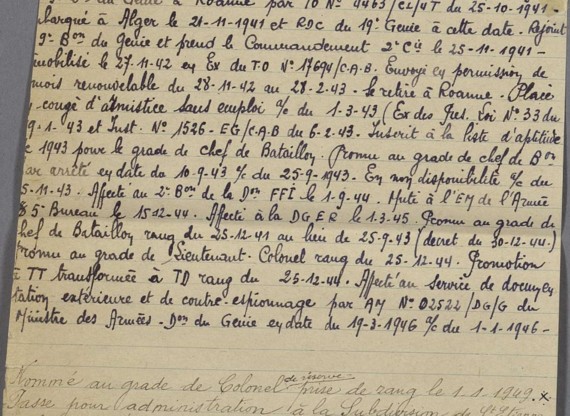 du Génie à Roanne par TO Nº 4463/CL/4T du 25-10-1941-
barqué à Alger le 21-11-1941 et RDC du 19e Génie à cette date. Rejoint
9e Bon du Génie et prend le Commandement 2e Cie le 25-11-1941-
mobilisé le 27-11-42 en Ex du TO Nº 17694/C.A.B. Envoyé en permission de
mois renouvelable du 28-11-42 au 28-2-43. Se retire à Roanne. Placé
congé d'armistice sans emploi %c du 1-3-43 (Ex des Pres. Loi Nº 33 du
9-1-43 et Inst. Nº 1526-EG/C.A.B du 6-2-43. Inscrit à la liste d'aptitude
1943 pour le grade de chef de Bataillon. Promu au grade de chef de Bon
par arrêté en date du 10-9-43 %c du 25-9-1943. En non disponibilité %c du
5-11-43. Affecté au 2e Bon de la Don FFI le 1-9-44. Muté à l'EM de l'Armée
5e Bureau le 15-12-44. Affecté à la DGER le 1.3.45. Promu au grade de
chef de Bataillon rang du 25-12-41 au lieu de 25-9-43 (décret du 30-12-44.)
Promu au grade de Lieutenant-Colonel rang du 25-12-44. Promotion
à TT transformée à TD rang du 25-12-44. Affecté au service de documen
tation extérieure et de contre-espionnage par AM Nº 02522/DG/G du
Ministre des Armées-Don du Génie en date du 19-3-1946 %c du 1-1-1946-
Nommé au grade de Colonel de réserve prise de rang le 1-1-1949. x
Passe pour administration à la Subdivision de